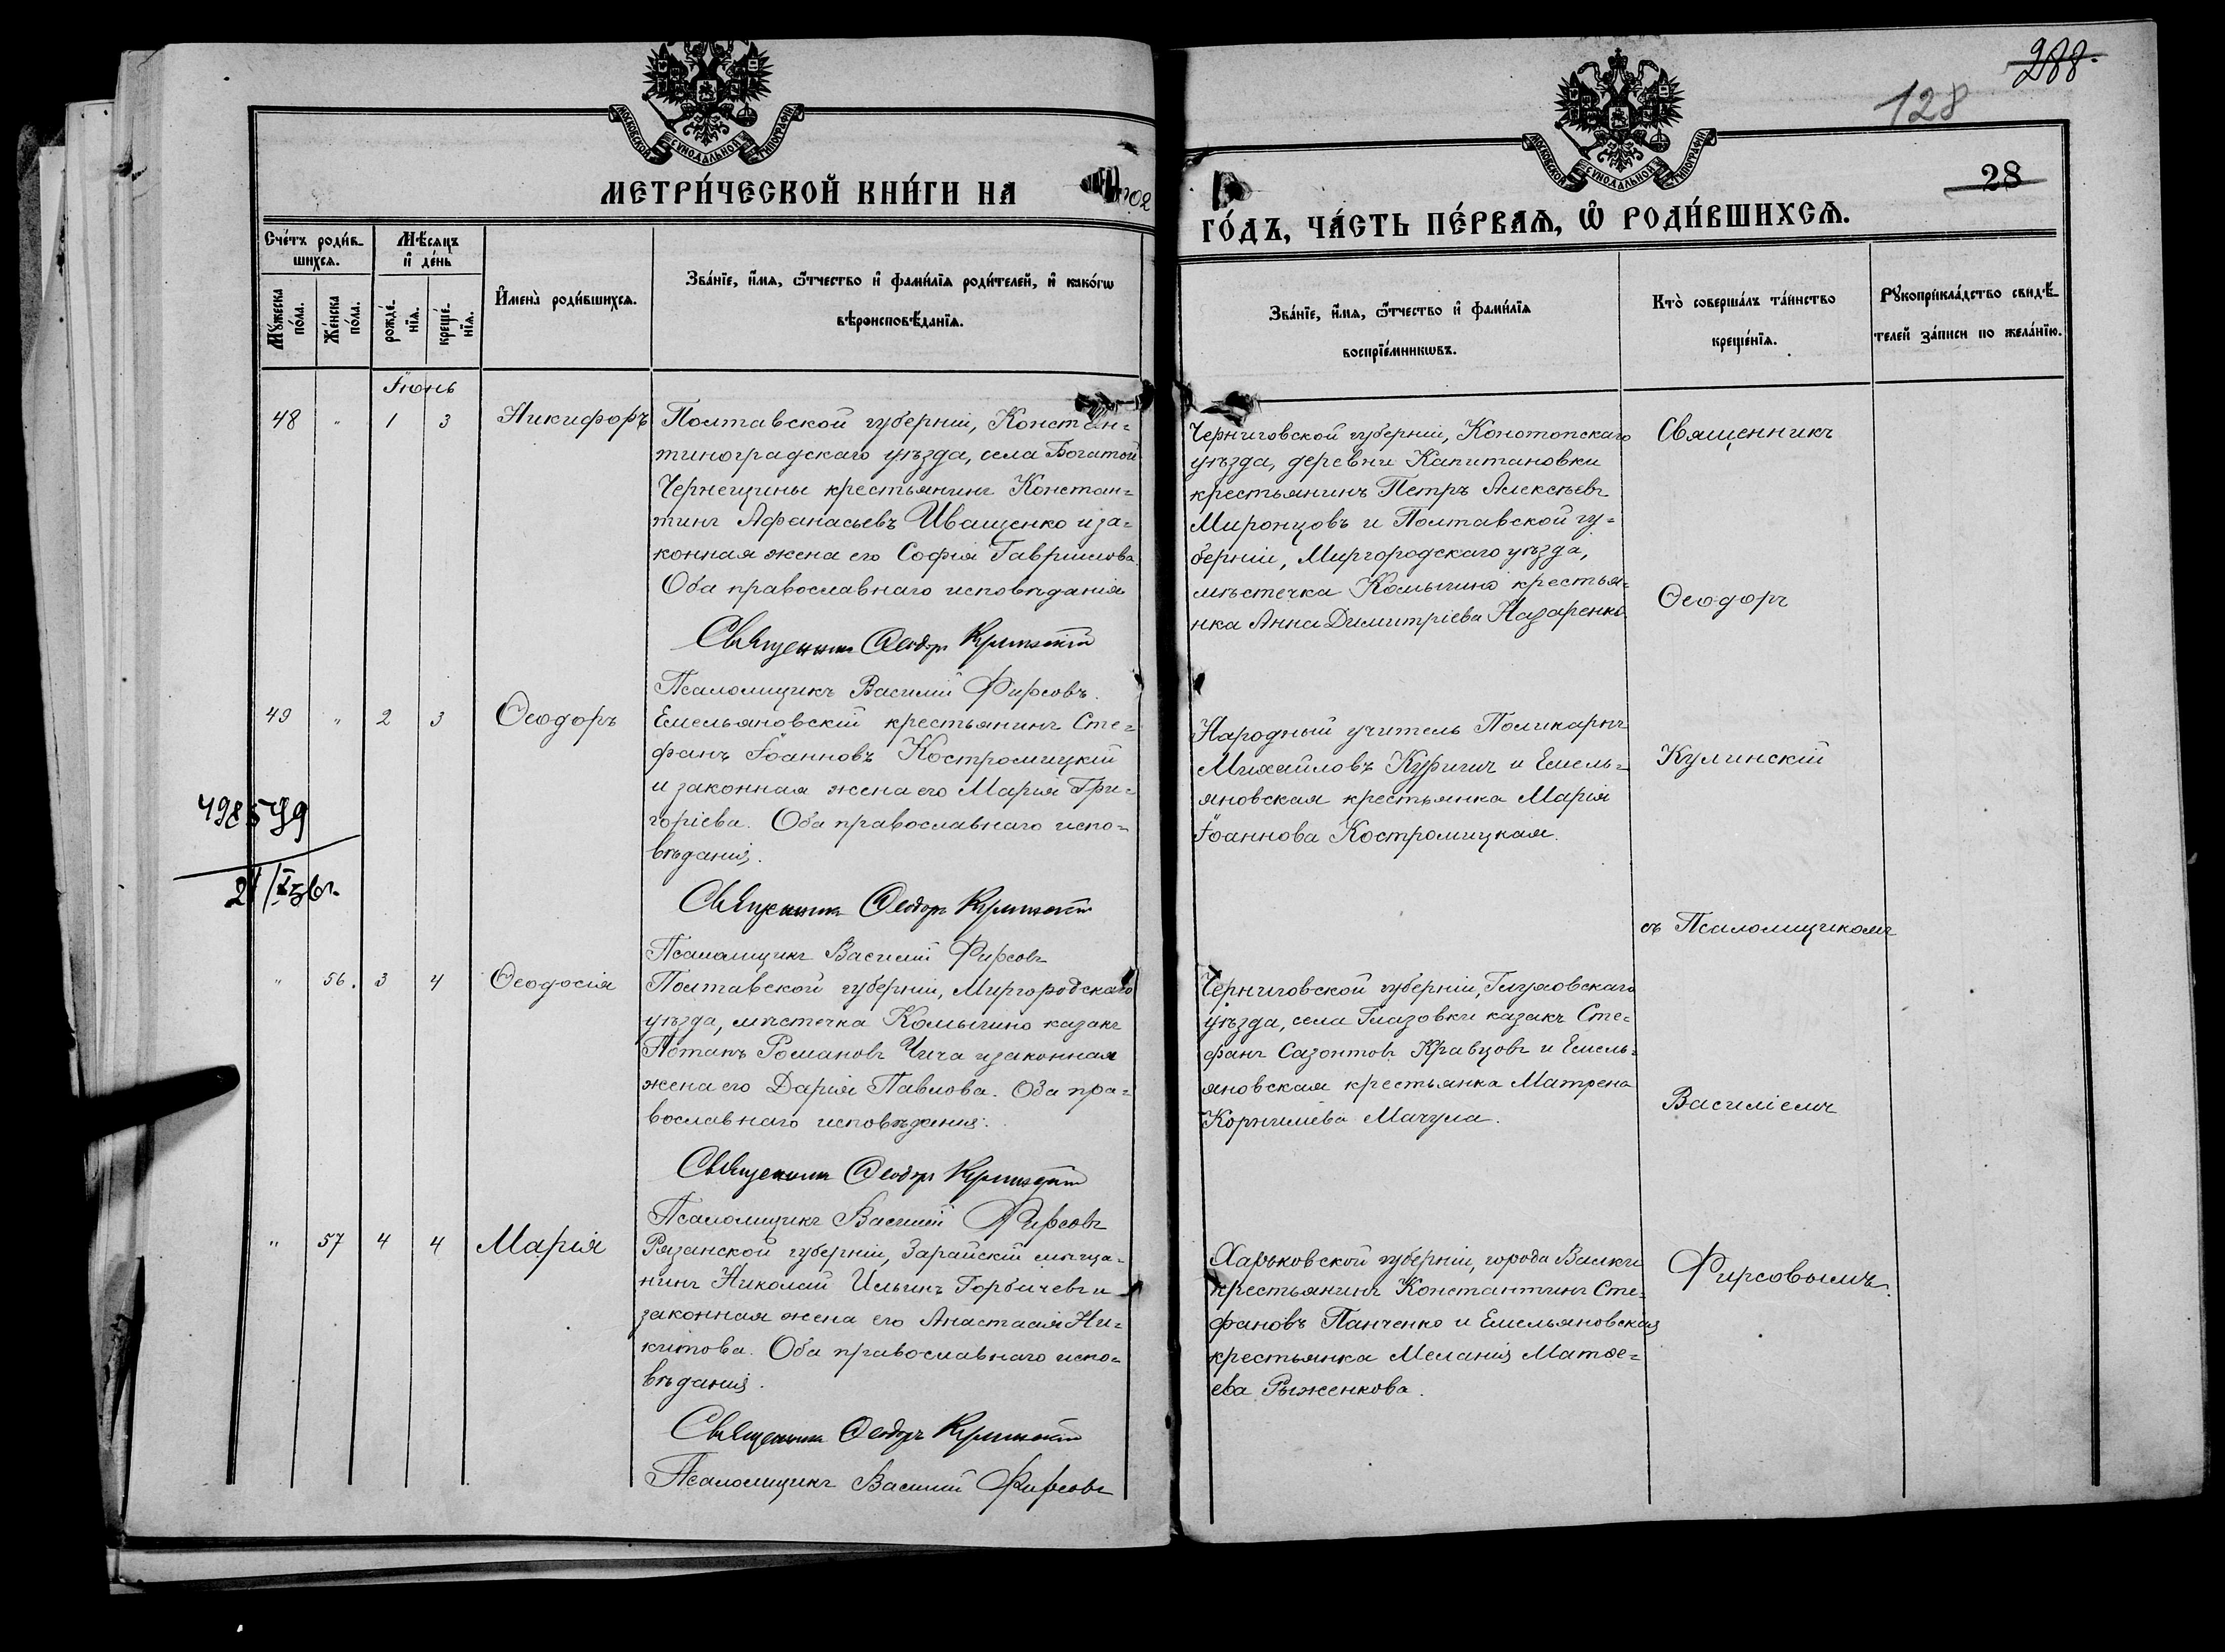 288
128
28
МОСКОВСКОЙ СѴНОДАЛЬНОЙ ТИПОГРАФІИ
МОСКОВСКОЙ СѴНОДАЛЬНОЙ ТИПОГРАФІИ
МЕТРИ́ЧЕСКОЙ КНИ́ГИ НА
02
ГО́ДЪ, ЧА́СТЬ ПЕ́РВАѦ, Ѽ РОДИ́ВШИХСѦ.
Сче́тъ роди́в-
шихсѧ.
Мꙋ́жеска по́ла.
Же́нска по́ла.
Мѣ́сѧцъ
и҆ де́нь
рожде́-
нїѧ.
креще́-
нїѧ.
И҆мена̀ роди́вшихсѧ.
Зва́нїе, и҆́мѧ, ѻ҆́тчество и҆ фами́лїѧ роди́телей, и҆ како́гѡ
вѣроисповѣ́данїѧ.
Зва́нїе, и҆́мѧ, ѻ҆́тчество и҆ фами́лїѧ
воспрїе́мникѡвъ.
Кто̀ соверша́лъ та́инство
креще́нїѧ.
Рꙋкоприкла́дство свидѣ́-
телей за́писи по жела́нїю.
Іюнь
48 " 1 3 Никифоръ
Полтавской губерніи, Констан=
тиноградскаго уѣзда, села Богатой
Чернещины крестьянинъ Констан=
тинъ Афанасьевъ Иващенко и за=
конная жена его Софія Гавриилова.
Оба православнаго исповѣданія
Священникъ Ѳеодоръ Кулинскій
Псаломщикъ Василій Фирсовъ.
Черниговской губерніи, Конотопскаго
уѣзда, деревни Капитановки
крестьянинъ Петръ Алексѣевъ
Миронцовъ и Полтавской гу=
берніи, Миргородскаго уѣзда,
мѣстечка Комышно крестья=
нка Анна Димитріева Назаренко.
Священникъ
Ѳеодоръ
49 " 2 3 Ѳеодоръ
Емельяновскій крестьянинъ Сте=
фанъ Іоанновъ Костромицкій
и законная жена его Марія Гри=
горіева. Оба православнаго испо=
вѣданія.
Священникъ Ѳеодоръ Кулинскій
Псаломщикъ Василій Фирсовъ
Народный учитель Поликарпъ
Михайловъ и Емель=
яновская крестьянка Марія
Іоаннова Костромицкая.
Кулинскій
съ Псаломщикомъ
498579
21/I 56г.
" 56. 3 4 Ѳеодосія
Полтавской губерніи, Миргородскаго
уѣзда, мѣстечка Комышно казакъ
Потапъ Романовъ Чича и законная
жена его Дарія Павлова. Оба пра=
вославнаго исповѣданія.
Священникъ Ѳеодоръ Кулинскій
Псаломщикъ Василій Фирсовъ
Черниговской губерніи, Глуховскаго
уѣзда, села Глазовки казакъ Сте=
фанъ Сазонтовъ Кравцовъ и Емель=
яновская крестьянка Матрена
Корнилиева Мачула.
Василіемъ
" 57 4 4 Марія
Рязанской губерніи, Зарайскій мѣща=
нинъ Николай Ильинъ Горбичевъ и
законная жена его Анастасія Ни=
китова. Оба православнаго испо=
вѣданія.
Священникъ Ѳеодоръ Кулинскій
Псаломщикъ Василій Фирсовъ
Харьковской губерніи, города Валки
крестьянинъ Константинъ Сте=
фановъ Панченко и Емельяновская
крестьянка Меланія Матѳе=
ева Рыженкова.
Фирсовымъ.